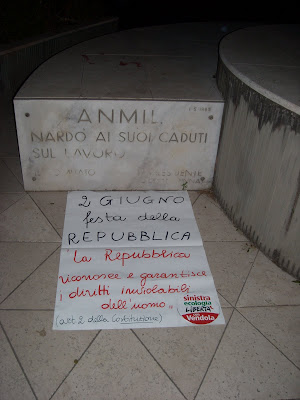 ANMIL
NARDÒ AI SUOI CADUTI
SUL LAVORO
2 GIUGNO
festa della
REPUBBLICA
"La Repubblica
riconosce e garantisce
i diritti inviolabili
dell'uomo"
(art 2 della Costituzione)
sinistra
ecologia
LIBERTA'
con Vendola